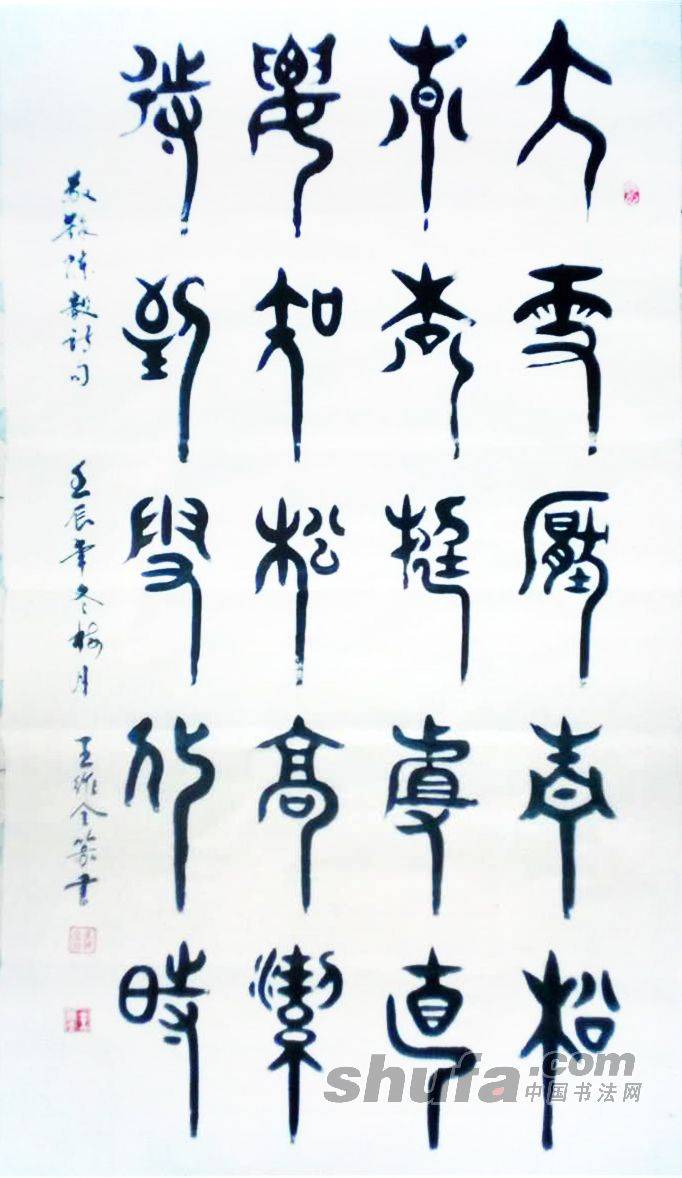 大雪壓青松
青松挺且直
要知松高潔
待到雪化時
敬錄陳毅詩句 壬辰年冬梅月 王維全篆書
shufa.com
中国书法网